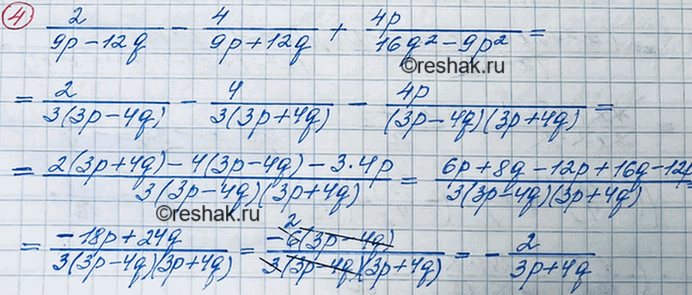 ④ 2/(9p-12q) - 4/(9p+12q) + 4p/(16q²-9p²) =
©reshak.ru
= 2/(3(3p-4q)) - 4/(3(3p+4q)) - 4p/((3p-4q)(3p+4q)) =
= (2(3p+4q)-4(3p-4q)-3·4p)/(3(3p-4q)(3p+4q)) = (6p+8q-12p+16q-12p)/(3(3p-4q)(3p+4q))
©reshak.ru
= (-18p+24q)/(3(3p-4q)(3p+4q)) = (-6(3p-4q))/(3(3p-4q)(3p+4q)) 2 = -2/(3p+4q)